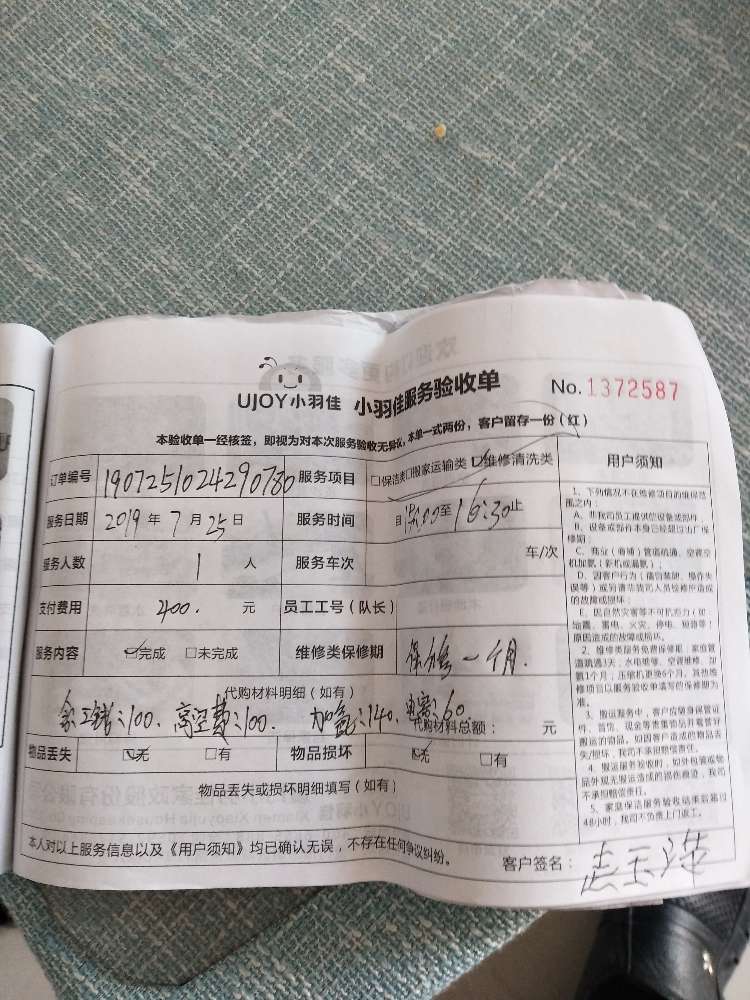 UJOY小羽佳 小羽佳服务验收单 No.1372587
本验收单一经核签，即视为对本次服务验收无异议，本单一式两份，客户留存一份（红）
订单编号 1907251024290780 服务项目 □保洁类□搬家运输类☑维修清洗类
服务日期 2019 年 7 月 25 日 服务时间 自 15:00至 16:30止
服务人数 1 人 服务车次 车/次
支付费用 400. 元 员工工号（队长）
服务内容 ☑完成 □未完成 维修类保修期 保修一个月.
代购材料明细（如有）
:100. 高空费:100. 加氟:140. 电容:60.
代购材料总额： 元
物品丢失 ☑无 □有 物品损坏 ☑无 □有
物品丢失或损坏明细填写（如有）
本人对以上服务信息以及《用户须知》均已确认无误，不存在任何争议纠纷。 客户签名：
用户须知
1、下列情况不在维修项目的维保范
围之内：
A、非我司员工提供的设备或部件
B、设备或部件本身已经超过出厂保
修期；
C、商业（商铺）管道疏通、空调空
机加氟（新机或漏氟）；
D、因客户行为（拖自禁烟、操作失
误等）或另请非我司人员检修所造成
的故障或损坏；
E、因自然灾害等不可抗拒力（如：
地震、雷电、火灾、停电、短路等）
原因造成的故障或损坏。
2、维修类服务免费保修期：家庭管
道疏通3天，水电维修、空调维修、加
氟1个月；压缩机更换6个月，其他维
修项目以服务验收单填写的保修期为
准。
3、搬运服务中，客户应随身保管证
件、首饰、现金等贵重物品并看管好
搬运的物品。如因客户造成的物品丢
失/损坏，我司不承担赔偿责任。
4、搬运服务验收时，如外包装或物
品外观无搬运造成的损伤痕迹，我司
不承担赔偿责任。
5、家庭保洁服务验收结束后超过
48小时，我司不负责上门返工。